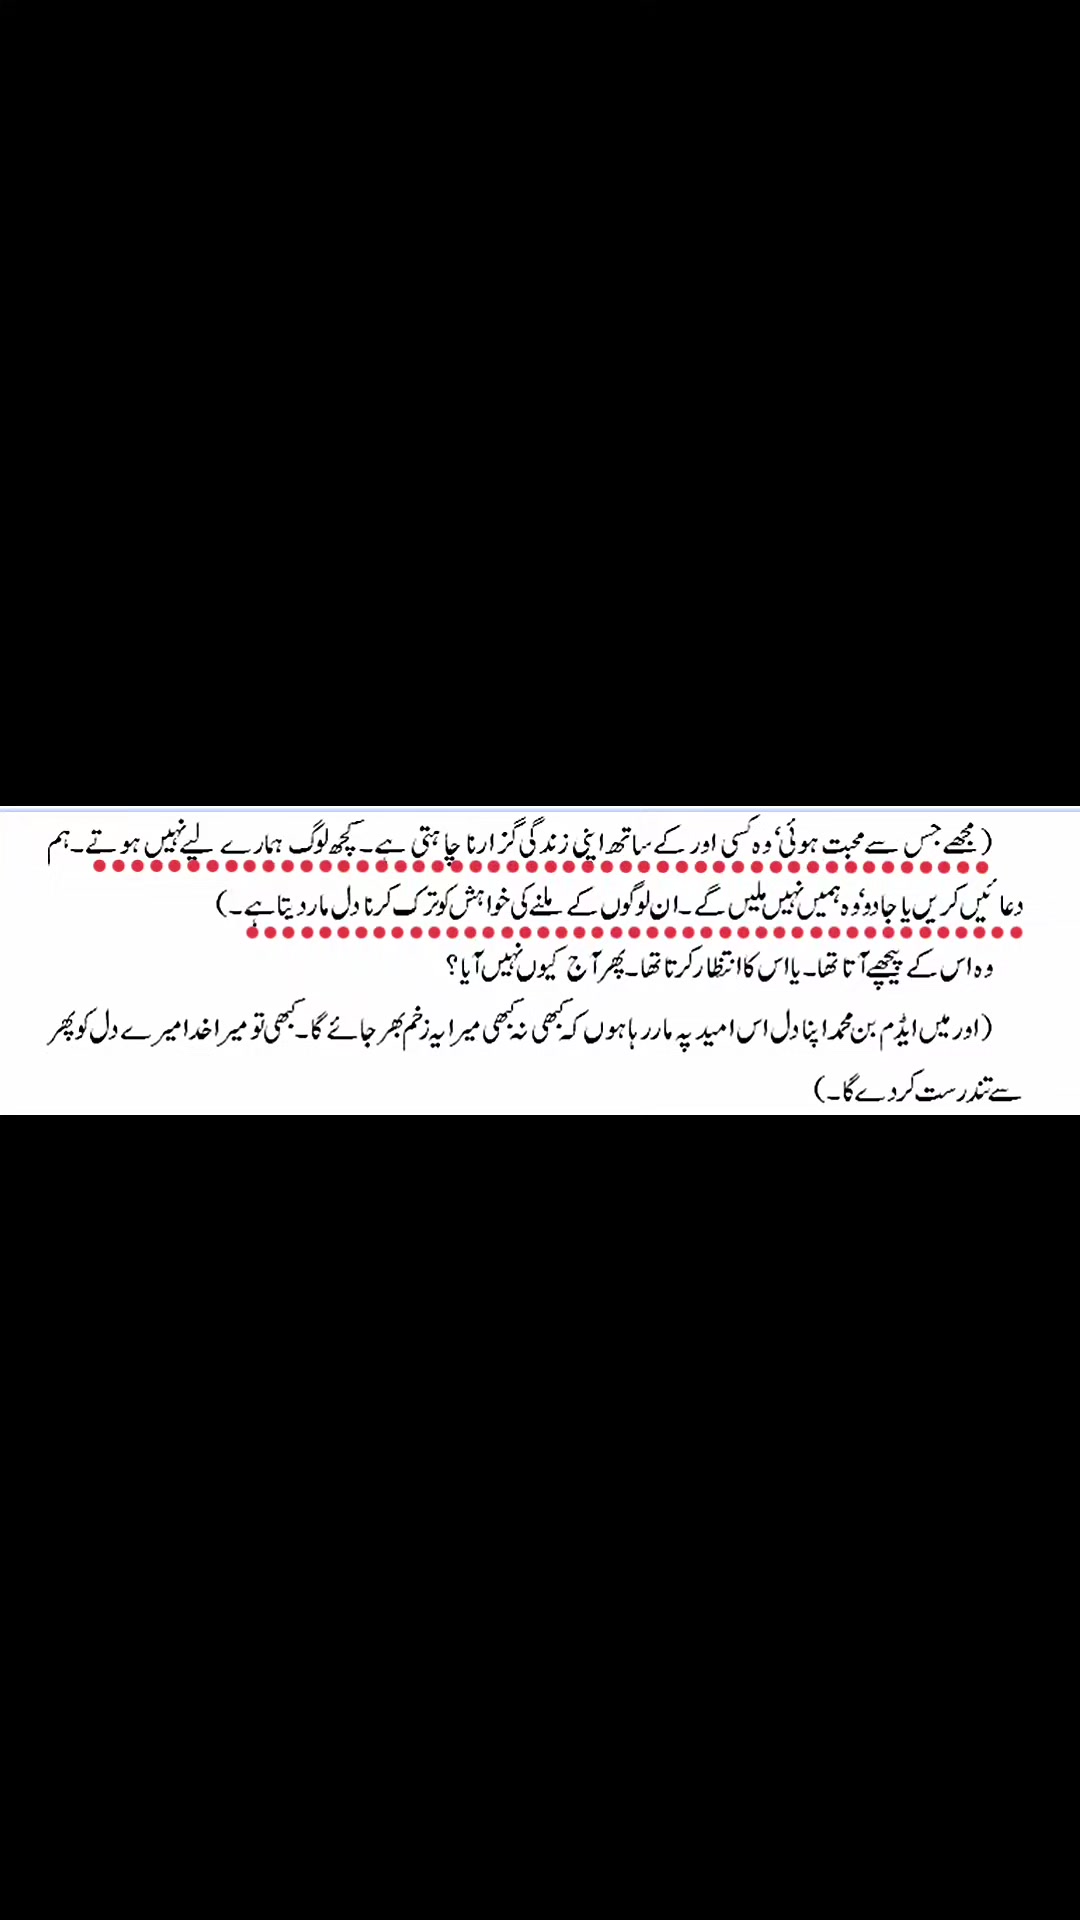 (مجھے جس سے محبت ہوئی‘ وہ کسی اور کے ساتھ اپنی زندگی گزارنا چاہتی ہے۔ کچھ لوگ ہمارے لیے نہیں ہوتے۔ ہم
دعائیں کریں یا جادو‘ وہ ہمیں نہیں ملیں گے۔ ان لوگوں کے ملنے کی خواہش کو ترک کرنا دل مار دیتا ہے۔)
وہ اس کے پیچھے آتا تھا۔ یا اس کا انتظار کرتا تھا۔ پھر آج کیوں نہیں آیا؟
(اور میں ایڈم بن محمد اپنا دل اس امید پہ مار رہا ہوں کہ کبھی نہ کبھی میرا یہ زخم بھر جائے گا۔ کبھی تو میرا خدا میرے دل کو پھر
سے تندرست کر دے گا۔)